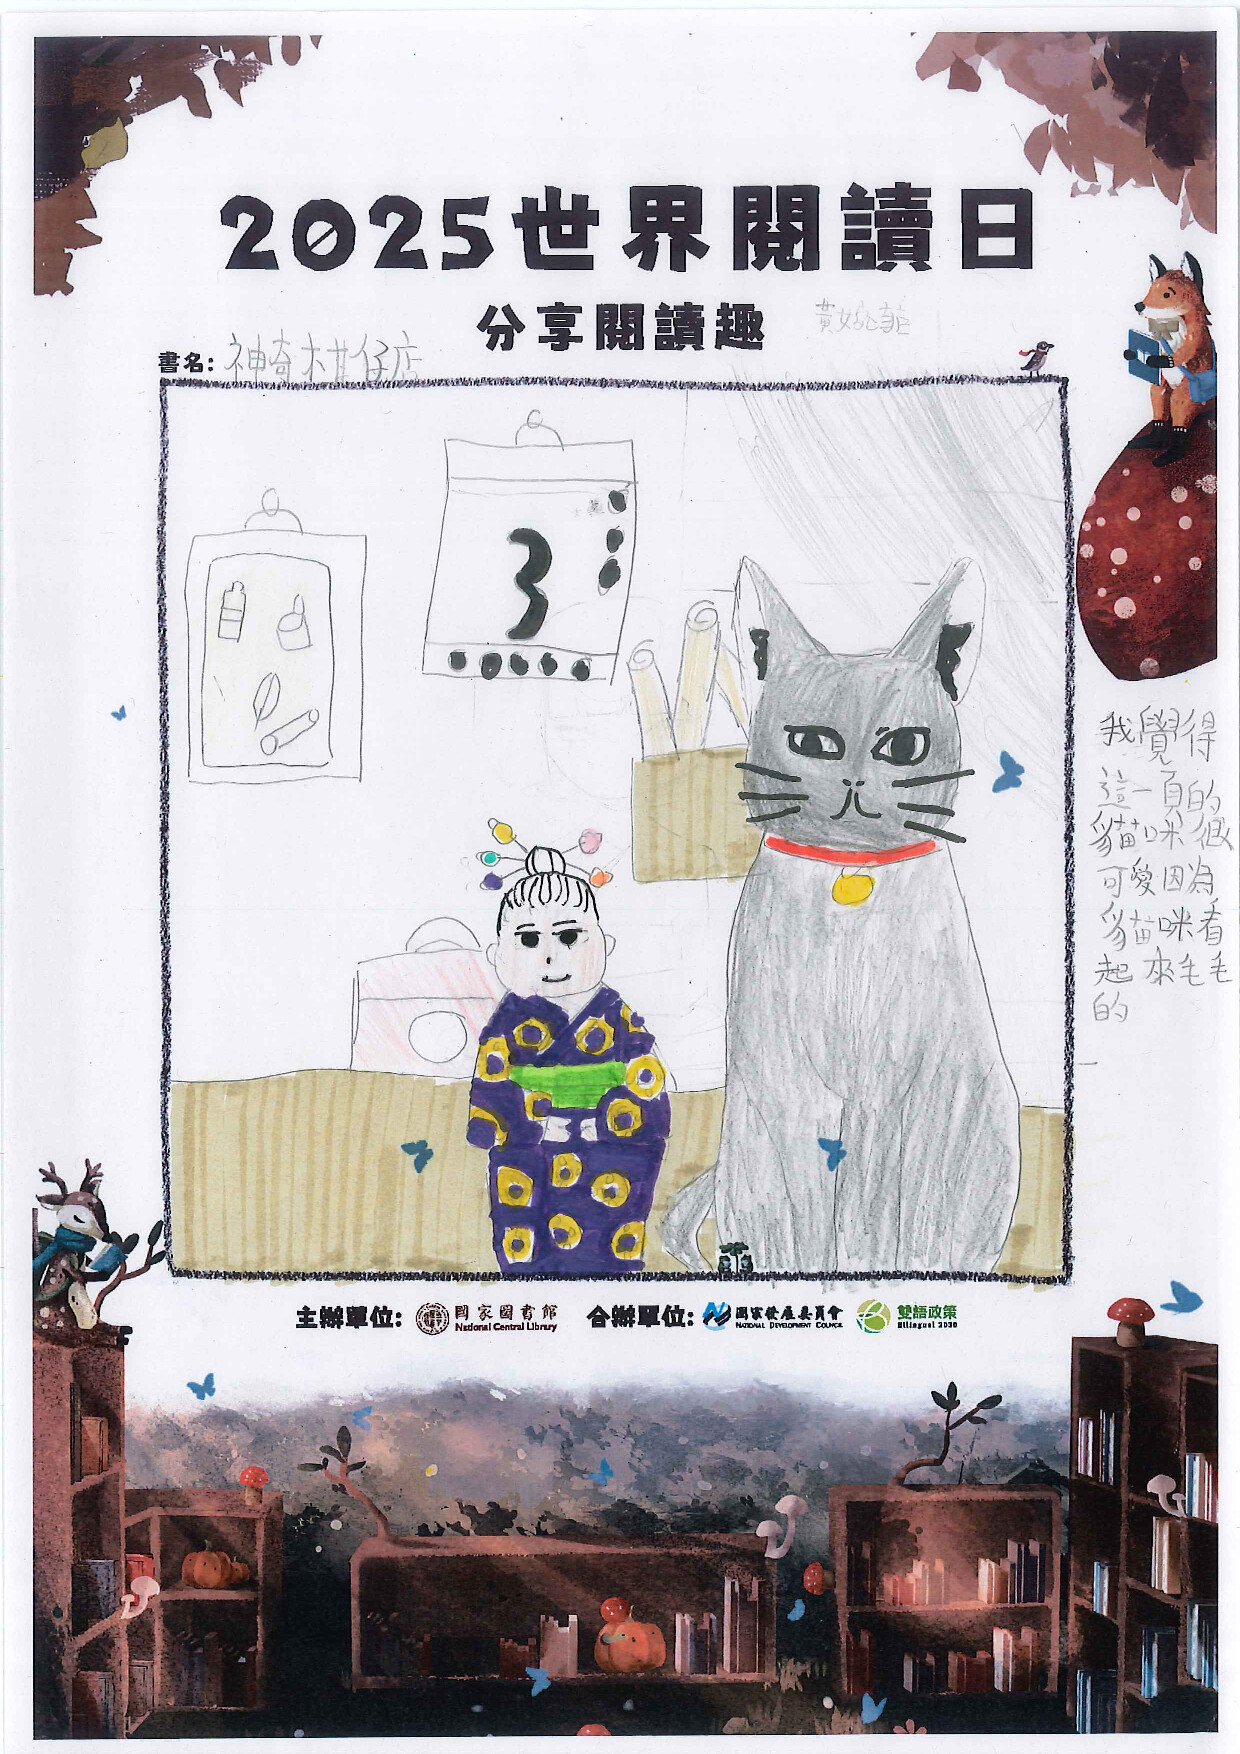 2025世界閱讀日
分享閱讀趣
書名: 神奇柑仔店
3
我覺得
這一頁的
貓咪很
可愛因為
貓咪看
起來毛毛
的
主辦單位: 國家圖書館 National Central Library 合辦單位: 國家發展委員會 NATIONAL DEVELOPMENT COUNCIL 雙語政策 Bilingual 2030